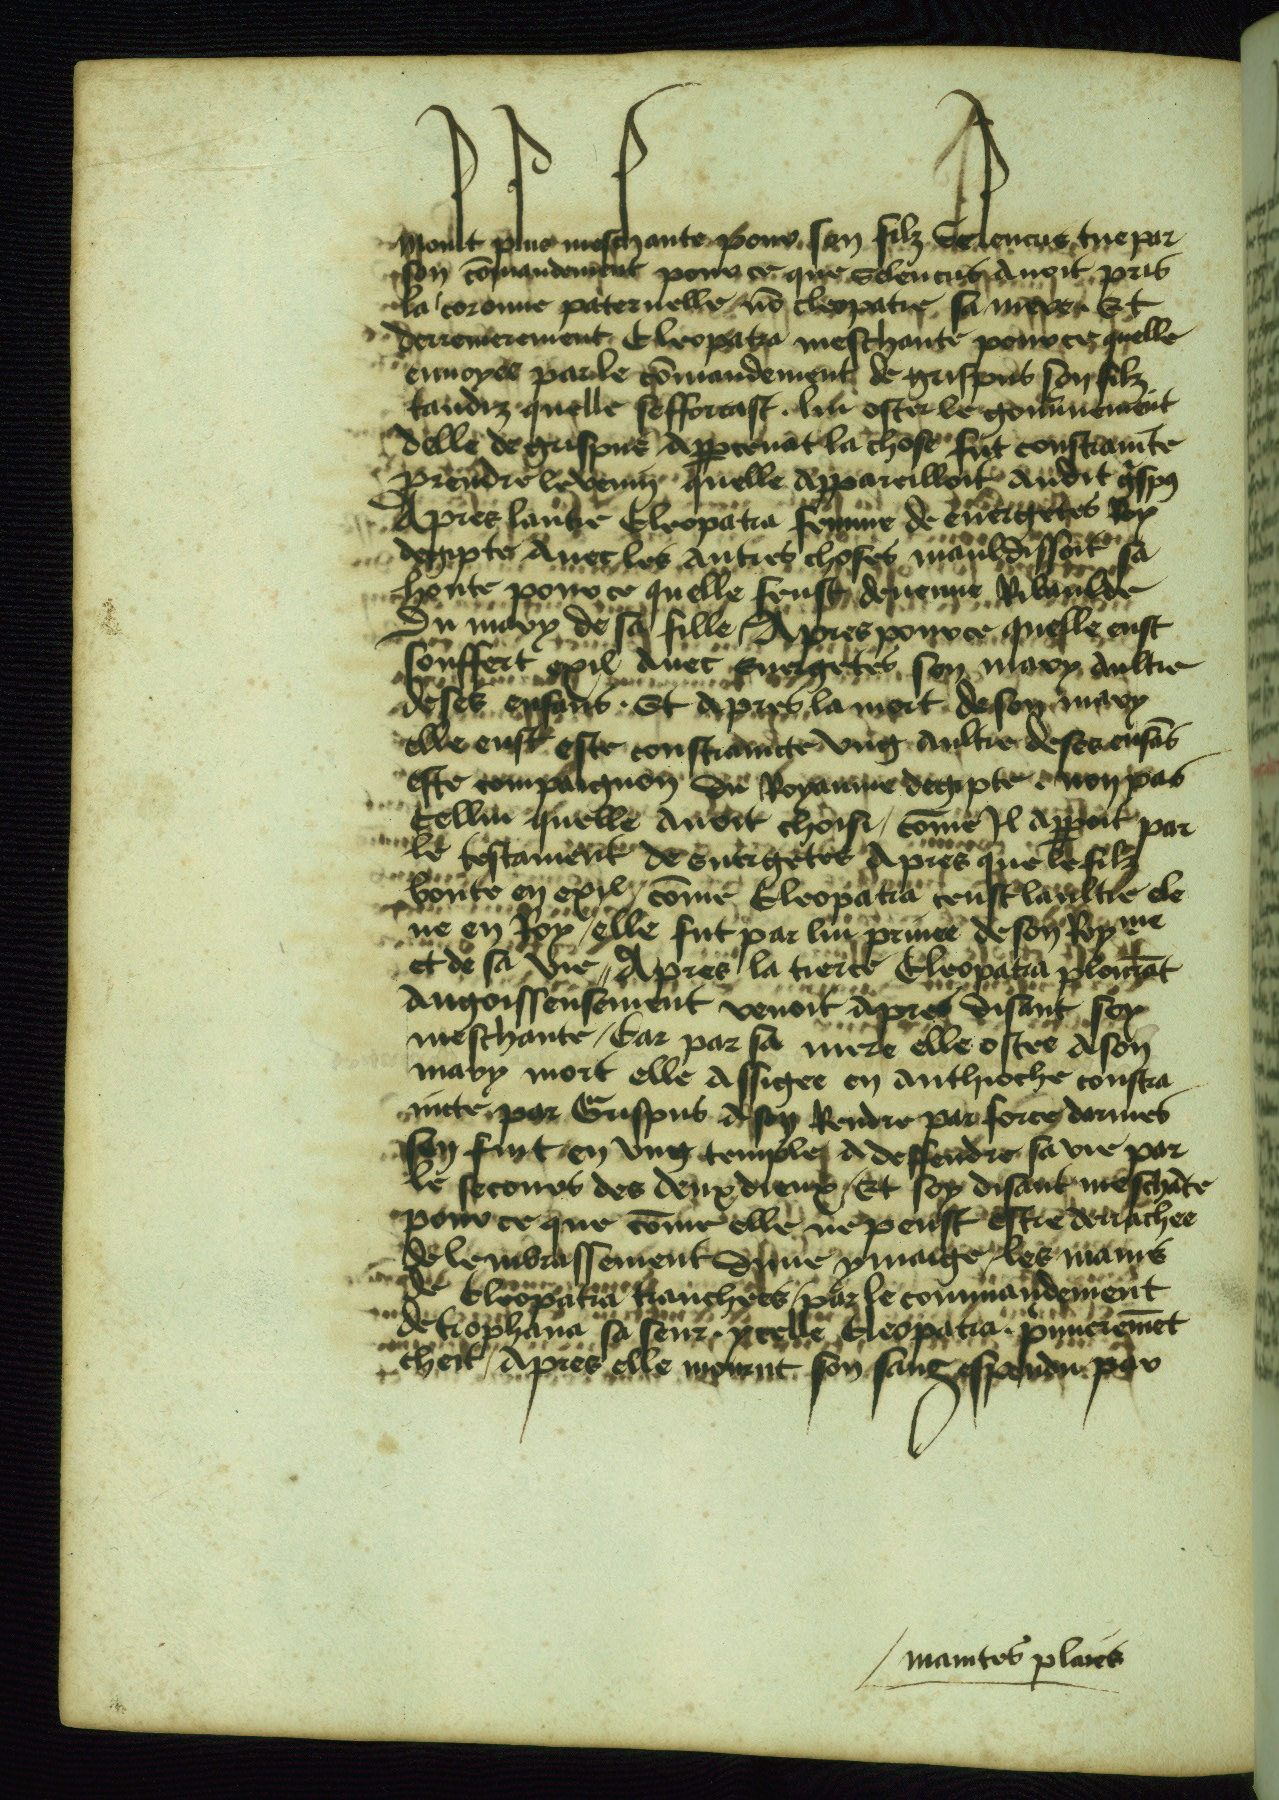 Moult plus meschante pour son filz Seleucus tue par
son cōmandement pour ce que Seleucus avoit pris
la coronne paternelle nō cleopatre sa mere. Et
derrenierement Cleopatra meschante pour ce quelle
envoyee par le cōmandement de grispus son filz
tandiz quelle sefforcast. lui oster le gouv̄nement
delle de grispus appcevāt la chose fut constrainte
prendre le venin quelle appareilloit audit gͥspꝯ
Apres lautre Cleopatra femme de evergetes Roy
degipte avec les autres choses mauldissoit sa
honte pour ce quelle feust devenue Ribaulde
Du mary de sa fille / Apres pour ce quelle eust
souffert exil avec Evergetes son mary aultre
de ses enfans. Et apres la mort de son mary
elle eust este constraincte ung aultre de ses enfās
estre compaignon du Royaume degipte. non pas
Cellui quelle avoit choisi / cōme Il appoit par
le testament de evergetes Apres que le filz
boute en exil / cōme Cleopatra ceust laultre ele
ve en Roy / elle fut par lui privee de son Royme
et de sa vie // Apres la tierce Cleopatra plourāt
Angoisseusement venoit apres disant soy
meschante / Car par sa mere elle ostee a son
mary mort elle assigee en anthioche constra
incte par Grispus a soy Rendre par force darmes
sen fuit en ung temple a deffendre sa vie par
le secours des deux dieux / Et soy disant meschāte
pour ce que cōme elle ne peust estre derrachee
de lembrassement dune ymaige / les mains
de Cleopatra tranchees / par le commandement
de trophana sa seur. ycelle Cleopatra. p̄mieremēt
cheit / Apres elle mourut son sang espendu par
/ maintes plaies